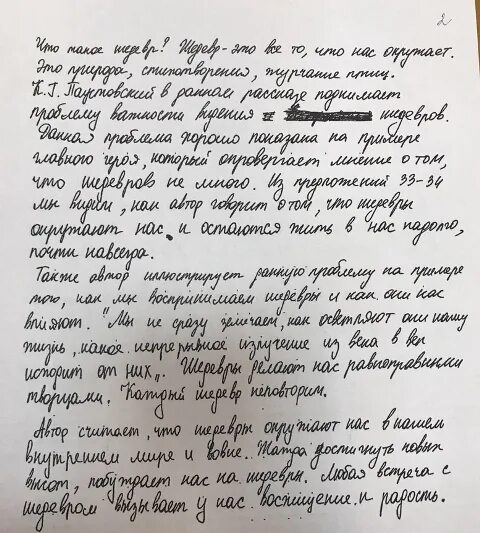 2
Что такое шедевр? Шедевр - это все то, что нас окружает.
Это природа, стихотворения, журчание птиц.
К.Г. Паустовский в данном рассказе поднимает
проблему важности видения шедевров.
Данная проблема хорошо показана на примере
главного героя, который опровергает мнение о том,
что шедевров не много. Из предложений 33-34
мы видим, как автор говорит о том, что шедевры
окружают нас и остаются жить в нас надолго,
почти навсегда.
Также автор иллюстрирует данную проблему на примере
того, как мы воспринимаем шедевры и как они нас
влияют. "Мы не сразу замечаем, как осветляют они нашу
жизнь, какое непрерывное излучение из века в век
историт от них". Шедевры делают нас равноправными
творцами. Каждый шедевр неповторим.
Автор считает, что шедевры окружают нас в нашем
внутреннем мире и вовне. Жажда достигнуть новых
высот, побуждает нас на шедевры. Любая встреча с
шедевром вызывает у нас восхищение и радость.